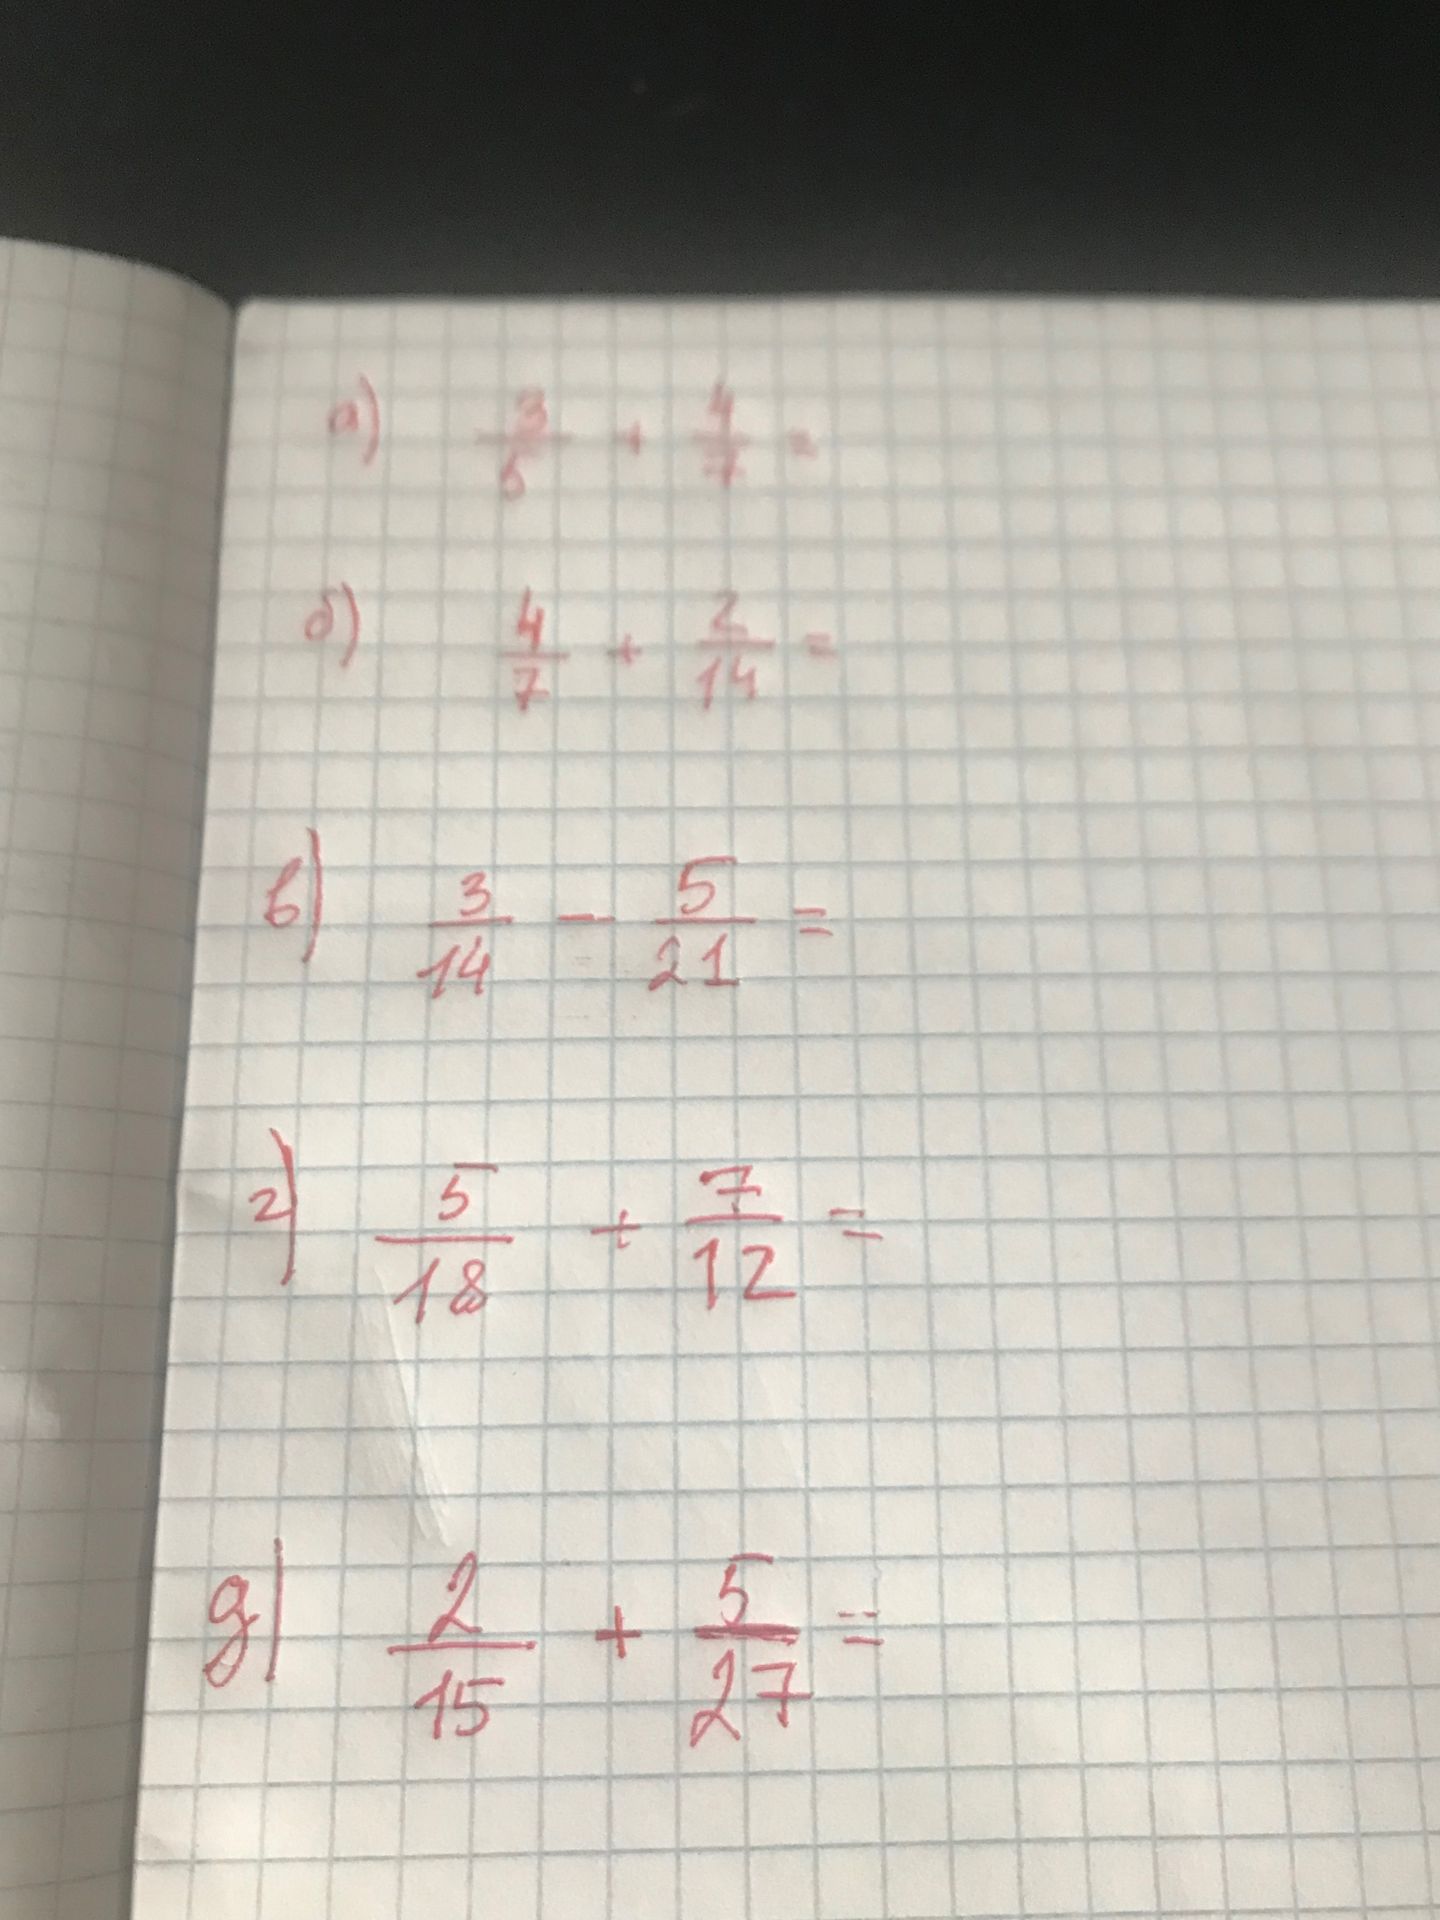 а) 3/5 + 4/7 =
б) 4/7 + 2/14 =
в) 3/14 - 5/21 =
г) 5/18 + 7/12 =
д) 2/15 + 5/27 =